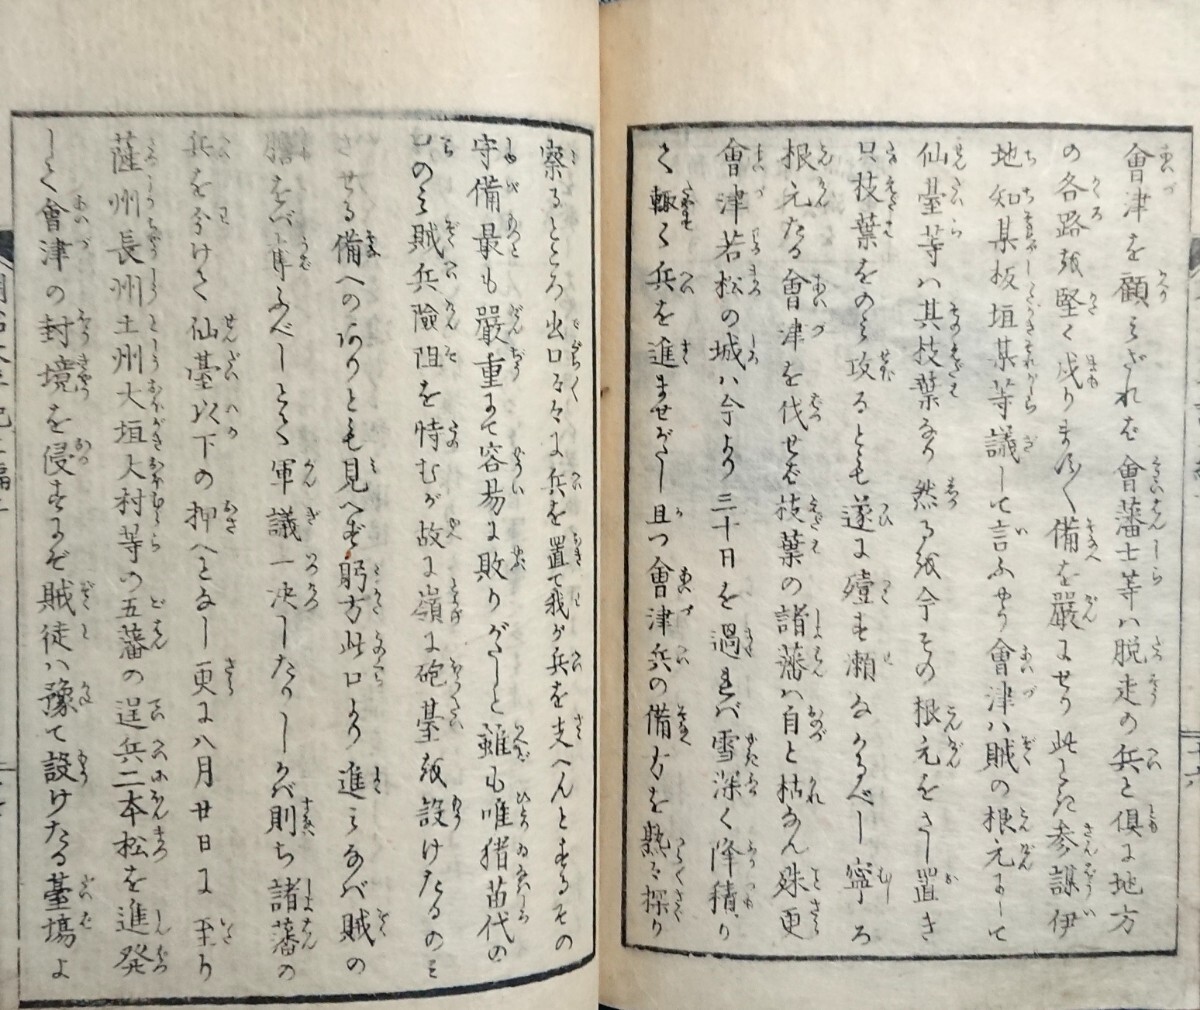 會津を顧みざれば會藩士等は脱走の兵と倶に地方
の各路を堅く戍ります〳〵備を嚴にせり此ときに參謀伊
地知某板垣某等議して言ふやう會津は賊の根元にして
仙臺等は其枝葉なり然るを今その根元をさし置き
只枝葉をのみ攻るとも遂に殪す瀬なかるべし寧ろ
根元たる會津を伐せば枝葉の諸藩は自と枯なん殊更
會津若松の城は今より三十日を過れば雪深く降積り
て輙く兵を進ませがたし且つ會津兵の備方を熟々探り
察るところ出口々々に兵を置て我が兵を支へんとするその
守備最も嚴重にて容易に敗りがたしと雖も唯猪苗代の
口のみ賊兵險阻を恃むが故に嶺に砲臺を設けたるのみ
させる備へのありとも見へず躬方此口より進みなば賊の
膽をば奪ふべしとて軍議一決したりしかば則ち諸藩の
兵を分けて仙臺以下の押へとなし更に八月廿日に至り
薩州長州土州大垣大村等の五藩の逞兵二本松を進発
して會津の封境を侵すにぞ賊徒は豫て設けたる臺場よ